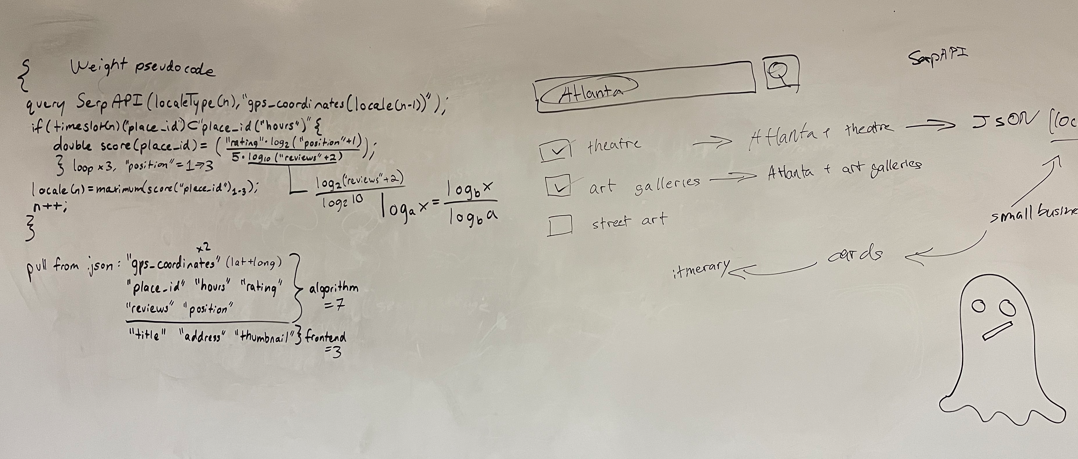 { Weight pseudocode
query SerpAPI(localeType(n),"gps_coordinates(locale(n-1))");
if(timeslot(n)("place_id)⊂"place_id("hours")"{
double score(place_id) = ("rating"·log₂("position"+1) / 5·log₁₀("reviews"+2));
} loop ×3, "position"=1→3
log₂("reviews"+2) / log₂10
logₐx = log_b x / log_b a
locale(n)=maximum(score("place_id")₁₋₃);
n++;
}
}
pull from .json: "gps_coordinates" x2 (lat+long)
"place_id" "hours" "rating"
"reviews" "position"
} algorithm
=7
"title" "address" "thumbnail" } frontend
=3
SerpAPI
Atlanta Q
theatre → Atlanta + theatre → JSON [loc
art galleries → Atlanta + art galleries
street art
small busine
cards
itmerary